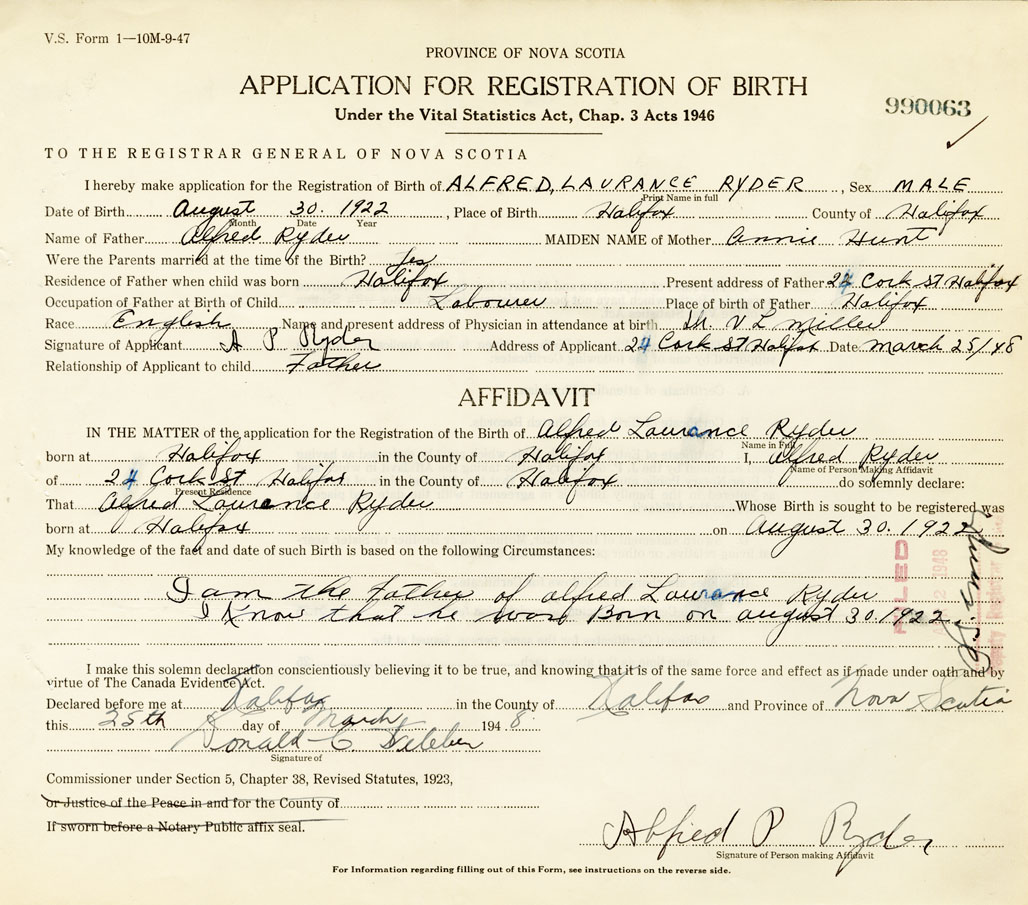 V.S. Form 1—10M-9-47
PROVINCE OF NOVA SCOTIA
APPLICATION FOR REGISTRATION OF BIRTH
990063
Under the Vital Statistics Act, Chap. 3 Acts 1946
TO THE REGISTRAR GENERAL OF NOVA SCOTIA
I hereby make application for the Registration of Birth of ALFRED, LAURANCE RYDER, Sex MALE
Print Name in full
Date of Birth August 30. 1922, Place of Birth Halifax County of Halifax
Month Date Year
Name of Father Alfred Ryder MAIDEN NAME of Mother Annie Hunt
Were the Parents married at the time of the Birth? Yes
Residence of Father when child was born Halifax Present address of Father 24 Cork St Halifax
Occupation of Father at Birth of Child Labourer Place of birth of Father Halifax
Race English Name and present address of Physician in attendance at birth Dr. V L Miller
Signature of Applicant A P Ryder Address of Applicant 24 Cork St Halifax Date March 25/48
Relationship of Applicant to child Father
AFFIDAVIT
IN THE MATTER of the application for the Registration of the Birth of Alfred Laurance Ryder
Name in Full
born at Halifax in the County of Halifax I, Alfred Ryder
Name of Person Making Affidavit
of 24 Cork St Halifax in the County of Halifax do solemnly declare:
Present Residence
That Alfred Laurence Ryder Whose Birth is sought to be registered was
born at Halifax on August 30. 1922
My knowledge of the fact and date of such Birth is based on the following Circumstances:
I am the Father of alfred Laurance Ryder
I Know that he was Born on august 30. 1922
FILED
1948
Deputy Registrar
I make this solemn declaration conscientiously believing it to be true, and knowing that it is of the same force and effect as if made under oath and by
virtue of The Canada Evidence Act.
Declared before me at Halifax in the County of Halifax and Province of Nova Scotia
this 25th day of March 1948
Donald C.
Signature of
Commissioner under Section 5, Chapter 38, Revised Statutes, 1923,
or Justice of the Peace in and for the County of
If sworn before a Notary Public affix seal.
Alfred P Ryder
Signature of Person making Affidavit
For Information regarding filling out of this Form, see instructions on the reverse side.